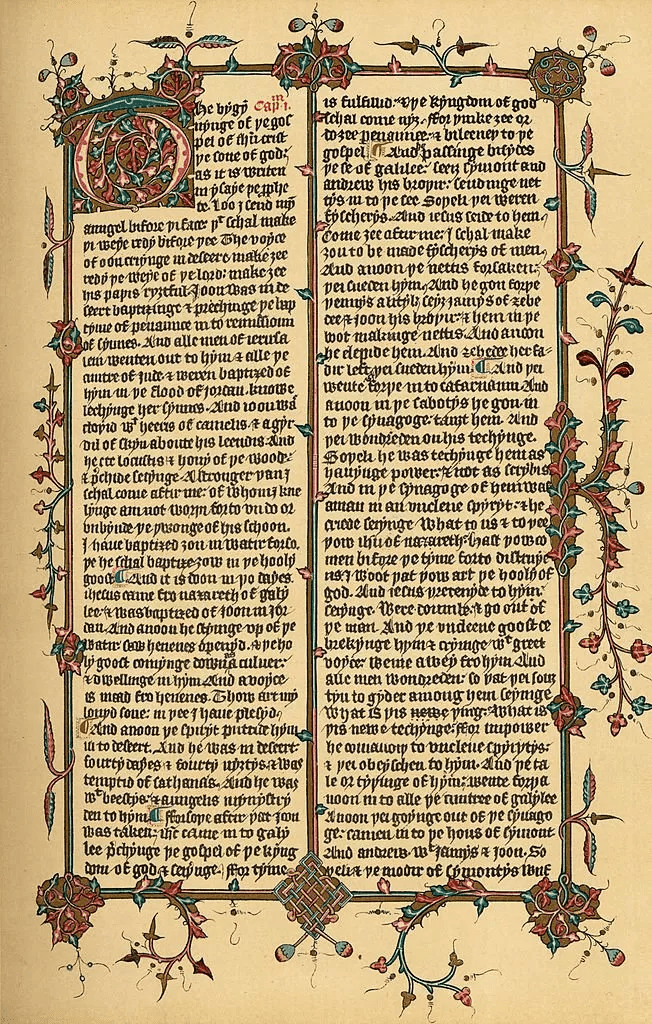 The bygyn
Cap. i.
nynge of ye gos
pel of ihu crist
ye sone of god:
as it is writen
in ysaye ye pphe
te. Loo j send myn
aungel bifore yi face: yt schal make
yi weye redy bifore yee. The voyce
of oon cryinge in desert: make zee
redy ye weye of ye lord: make zee
his papis ryztful. Joon was in de
sert baptizinge & prechinge ye bap
tyme of penaunce in to remissioun
of synnes. And alle men of jerusa
lem wenten out to hym & alle ye
cuntre of Jude & weren baptized of
hym in ye flood of jordan. knowe
lechynge her synnes. And ioon was
cloyid wt heeris of camelis & a gyr
dil of skyn aboute his leendis. And
he eet locustis & hony of ye wode:
& pchide seiynge. A stronger yan j
schal come aftir me: of whom j kne
lynge am not worþi forto vn do or
vnbynde ye ywonge of his schoon.
J haue baptized zou in watir forso.
ye he schal baptize zow in ye hooly
goost. And it is doon in yo dayes.
ihesus came fro nazareth of galy
lee. & was baptized of joon in jor
dan. And anoon he stiynge vp of ye
watir saw heuenes openyd. & ye ho
ly goost comynge doun as a culuer:
& dwellinge in hym. And a voyce
is maad fro heuenes. Thow art my
louyd sone: in yee j haue plesyd.
And anoon ye spiryt puttide hym
in to desert. And he was in desert
fourty dayes & fourty nyztys & was
temptid of sathanas. And he was
wt beestys. & aungelis mynystry
den to hym. fforsoye aftir yat joon
was taken: ihc came in to galy
lee pchynge ye gospel of ye kyng
dom of god & seiynge. ffor tyme
is fulfillid. & ye kyngdom of god
schal come nyz. ffor yinke zee or
do zee penaunce. & bileeuey to ye
gospel. And passinge bisydes
ye se of galilee. seez symont and
andrew his broyir. sendinge net
tys in to ye see. Soyeli yei weren
fyscherys. And iesus seide to hem.
Come zee aftir me: j schal make
zou to be made fyscherys of men.
And anoon ye nettis forsaken:
yei sueden hym. And he gon forye
yennys a lityl: seyz jamys of zebe
dee & joon his broyir & hem in ye
boot makinge nettis. And anoon
he clepide hem. And zebedee her fa-
dir left: yei sueden hym. And yei
wente forye in to cafarnaum. And
anoon in ye sabotys he gon in
to ye synagoge: tauzt hem. And
yei wondreden on his techynge.
Soyeli he was techynge hem as
hauynge power: & not as scrybis.
And in ye synagoge of hem was
a man in an vnclene spyryt. & he
criede seiynge. What to us & to yee
yow ihu of nazareth: hast yow co
men bifore ye tyme forto distruye
us. J woot yat yow art ye hooly of
god. And iesus yretenyde to hym:
seiynge. Were doumb. & go out of
ye man. And ye vnclene goost ce
brekynge hym & cryinge wt greet
voyce: wente awey fro hym. And
alle men wondreden: so yat yei souz
ten to gyder among hem seyinge
What is yis newe ying: What is
yis newe techynge: ffor in power
he comaundiy to vnclene spyrytys:
& yei obeyschen to hym. And ye ta
le or tyyinge of hym: wente forya
noon in to alle ye cuntree of galylee
Anoon yei goynge oute of ye synago
ge: camen in to ye hous of symont
And andrew. wt jamys & joon. So
yeli & ye modir of symontys wiif